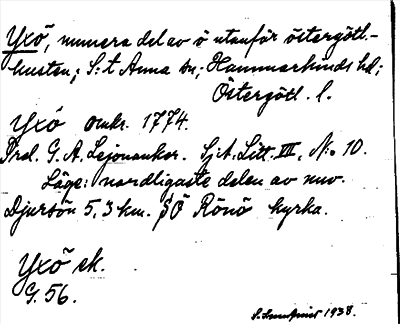 Yxö, numera del av ö utanför östergötl.-
kusten; S:t Anna sn; Hammarkinds hd;
Östergötl. l.
Yxö omkr. 1774.
Prel. G. A. Lejonankar. Sj.A. Litt. VII, No 10.
Läge: nordligaste delen av nuv.
Djursön 5,3 km. SÖ Rönö kyrka.
Yxö ek.
G. 56.
1938.